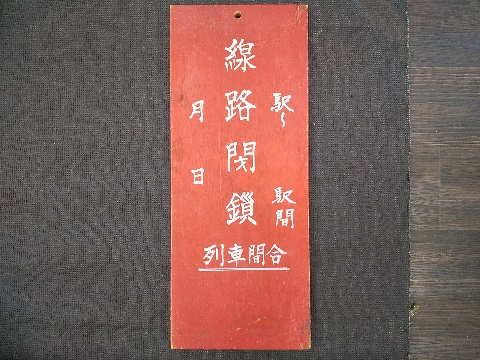 駅〜 駅間
線路閉鎖
月 日
列車間合